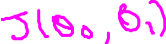 J(θ₀, θ₁)